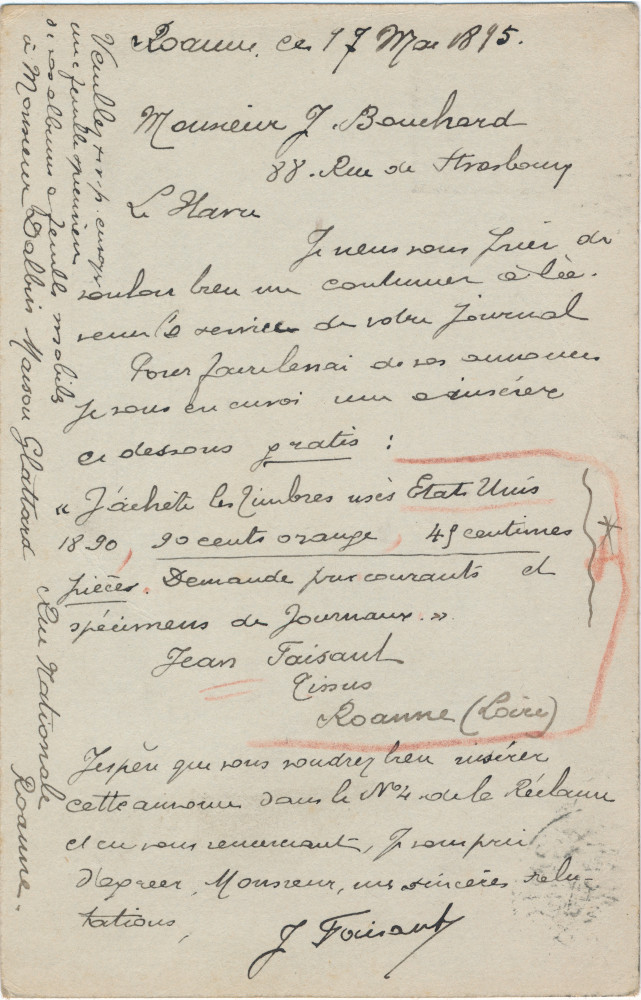 Roanne, ce 17 Mai 1895.
Monsieur J. Bouchard
88. Rue de Strasbourg
Le Havre
Je viens vous prier de
vouloir bien me continuer à
le service de votre Journal
Pour faire l'essai de vos annonces
Je vous en envoi une a insérer
ci dessous gratis :
« J'achète les Timbres usés Etats Unis
1890, 90 cents orange, 45 centimes
pièces. Demande prix courants et
spécimens de Journaux. »
Jean Faisant
Tissus
Roanne (Loire)
J'espère que vous voudrez bien insérer
cette annonce dans le No 4 de la Réclame
et en vous remerciant, Je vous prie
d'agréer, Monsieur, mes sincères salu-
tations,
J Faisant
Veuillez s.v.p. envoyer
une feuille spécimen
de vos albums a feuilles mobiles
à Monsieur Dalbris Maison Glattard Rue Nationale Roanne.